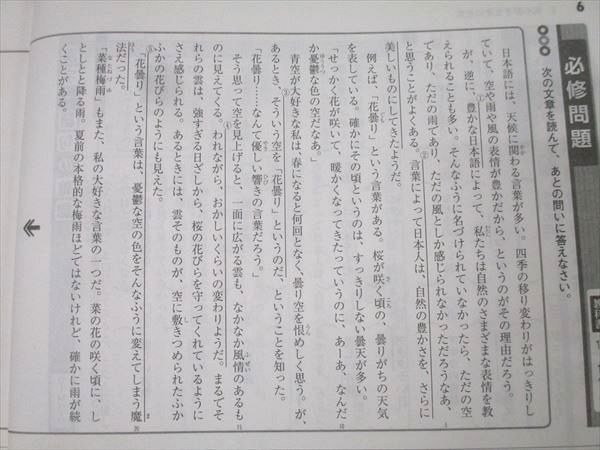 6
必修問題
次の文章を読んで、あとの問いに答えなさい。
日本語には、天候に関わる言葉が多い。四季の移り変わりがはっきりし
ていて、空や雨や風の表情が豊かだから、というのがその理由だろう。
が、逆に、①豊かな日本語によって、私たちは自然のさまざまな表情を教
えられることも多い。そんなふうに名づけられていなかったら、ただの空
であり、ただの雨であり、ただの風としか感じられなかっただろうなあ、
と思うことがよくある。②言葉によって日本人は、自然の豊かさを、さらに
美しいものにしてきたようだ。
例えば、「花曇り」という言葉がある。桜が咲く頃の、曇りがちの天気
を表している。確かにその頃というのは、すっきりしない曇天が多い。
「せっかく花が咲いて、暖かくなってきたっていうのに、あーあ、なんだ
か憂鬱な色の空だなあ。」
青空が大好きな私は、春になると何回となく、曇り空を恨めしく思う。が、
あるとき、そういう空を「花曇り」というのだ、ということを知った。
「花曇り……なんて優しい響きの言葉だろう。」
そう思って空を見上げると、一面に広がる雲も、なかなか風情のあるも
のに見えてくる。われながら、おかしいくらいの変わりようだ。まるでそ
れらの雲は、強すぎる日ざしから、桜の花びらを守ってくれているように
さえ感じられる。あるときには、雲そのものが、空に敷きつめられたふか
ふかの花びらのようにも見えた。
「花曇り」という言葉は、憂鬱な空の色をそんなふうに変えてしまう魔
法だった。
「菜種梅雨」もまた、私の大好きな言葉の一つだ。菜の花の咲く頃に、し
としとと降る雨。夏前の本格的な梅雨ほどではないけれど、確かに雨が続
くことがある。